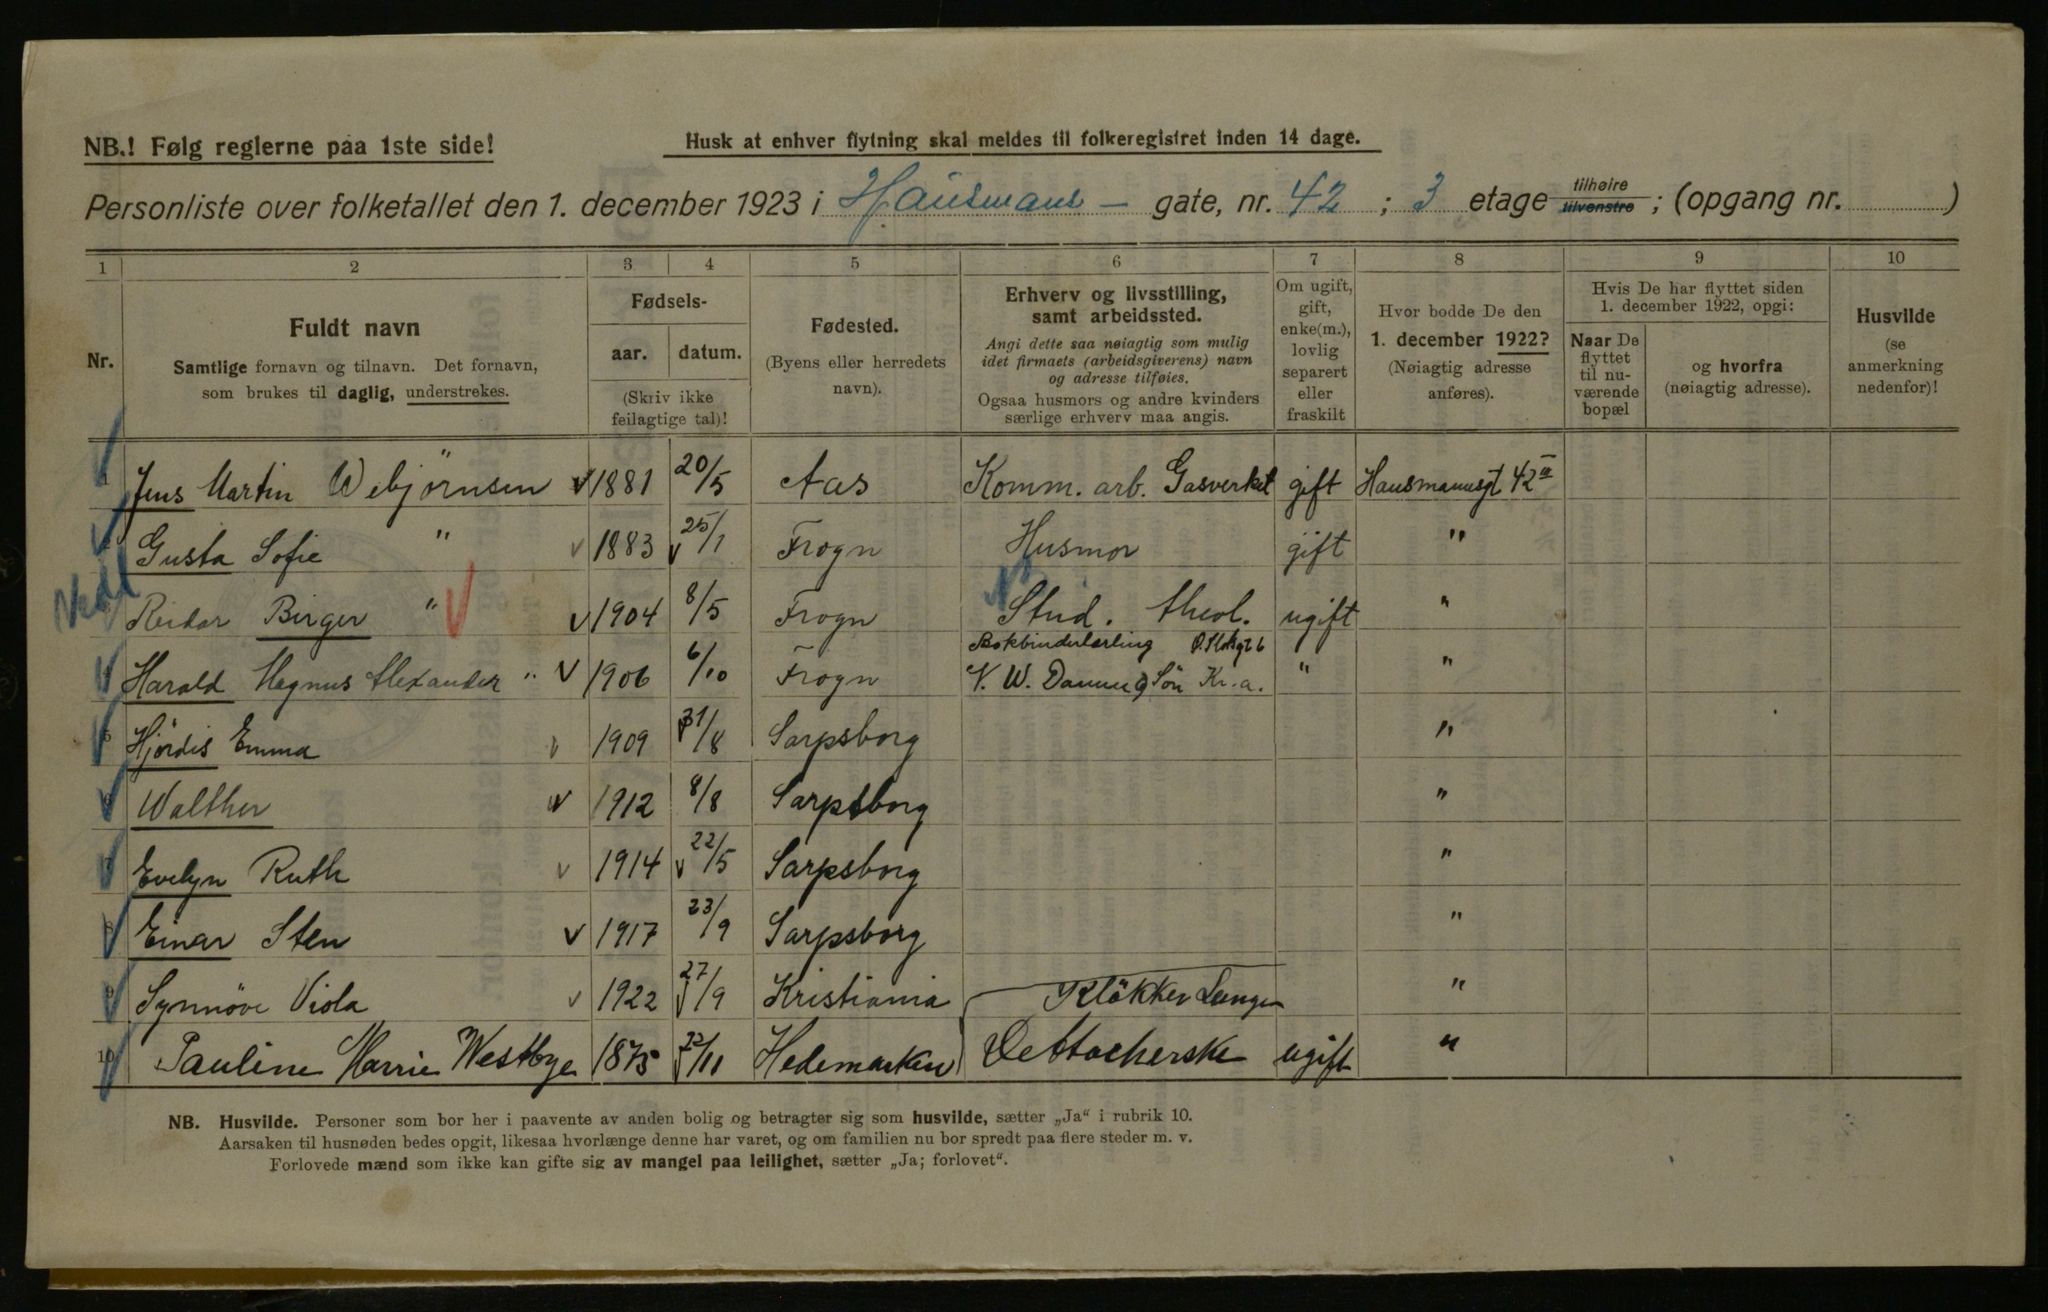 NB.! Følg reglerne paa 1ste side!
Husk at enhver flytning skal meldes til folkeregistret inden 14 dage.
Personliste over folketallet den 1. december 1923 i Hausmans – gate, nr. 42 ; 3 etage tilhøire tilvenstre ; (opgang nr. )
1 2 3 4 5 6 7 8 9 10
Nr.
Fuldt navn
Samtlige fornavn og tilnavn. Det fornavn,
som brukes til daglig, understrekes.
Fødsels-
aar. datum.
(Skriv ikke
feilagtige tal)!
Fødested.
(Byens eller herredets
navn).
Erhverv og livsstilling,
samt arbeidssted.
Angi dette saa nøiagtig som mulig
idet firmaets (arbeidsgiverens) navn
og adresse tilføies.
Ogsaa husmors og andre kvinders
særlige erhverv maa angis.
Om ugift,
gift,
enke(m.),
lovlig
separert
eller
fraskilt
Hvor bodde De den
1. december 1922?
(Nøiagtig adresse
anføres).
Hvis De har flyttet siden
1. december 1922, opgi:
Naar De
flyttet
til nu-
værende
bopæl
og hvorfra
(nøiagtig adresse).
Husvilde
(se
anmerkning
nedenfor)!
Jens Martin Webjörnsen 1881 20/5 Aas Komm. arb. Gasverket gift Hausmannsgt 42 III
Gusta Sofie " 1883 25/1 Frogn Husmor gift "
Reidar Birger " 1904 8/5 Frogn Stud. theol. ugift "
Bokbinderlærling
Harald Magnus Alexander " 1906 6/10 Frogn Søn Kr.a. " "
Hjördis Emma 1909 31/8 Sarpsborg "
Walther 1912 8/8 Sarpsborg "
7 Evelyn Ruth 1914 22/5 Sarpsborg "
8 Einar Sten 1917 23/9 Sarpsborg "
9 Synnöve Viola 1922 27/9 Kristiania "
Klökker
10 Pauline Marrie Westbye 1875 /11 Hedemarken ugift "
NB. Husvilde. Personer som bor her i paavente av anden bolig og betragter sig som husvilde, sætter „Ja“ i rubrik 10.
Aarsaken til husnøden bedes opgit, likesaa hvorlænge denne har varet, og om familien nu bor spredt paa flere steder m. v.
Forlovede mænd som ikke kan gifte sig av mangel paa leilighet, sætter „Ja; forlovet“.